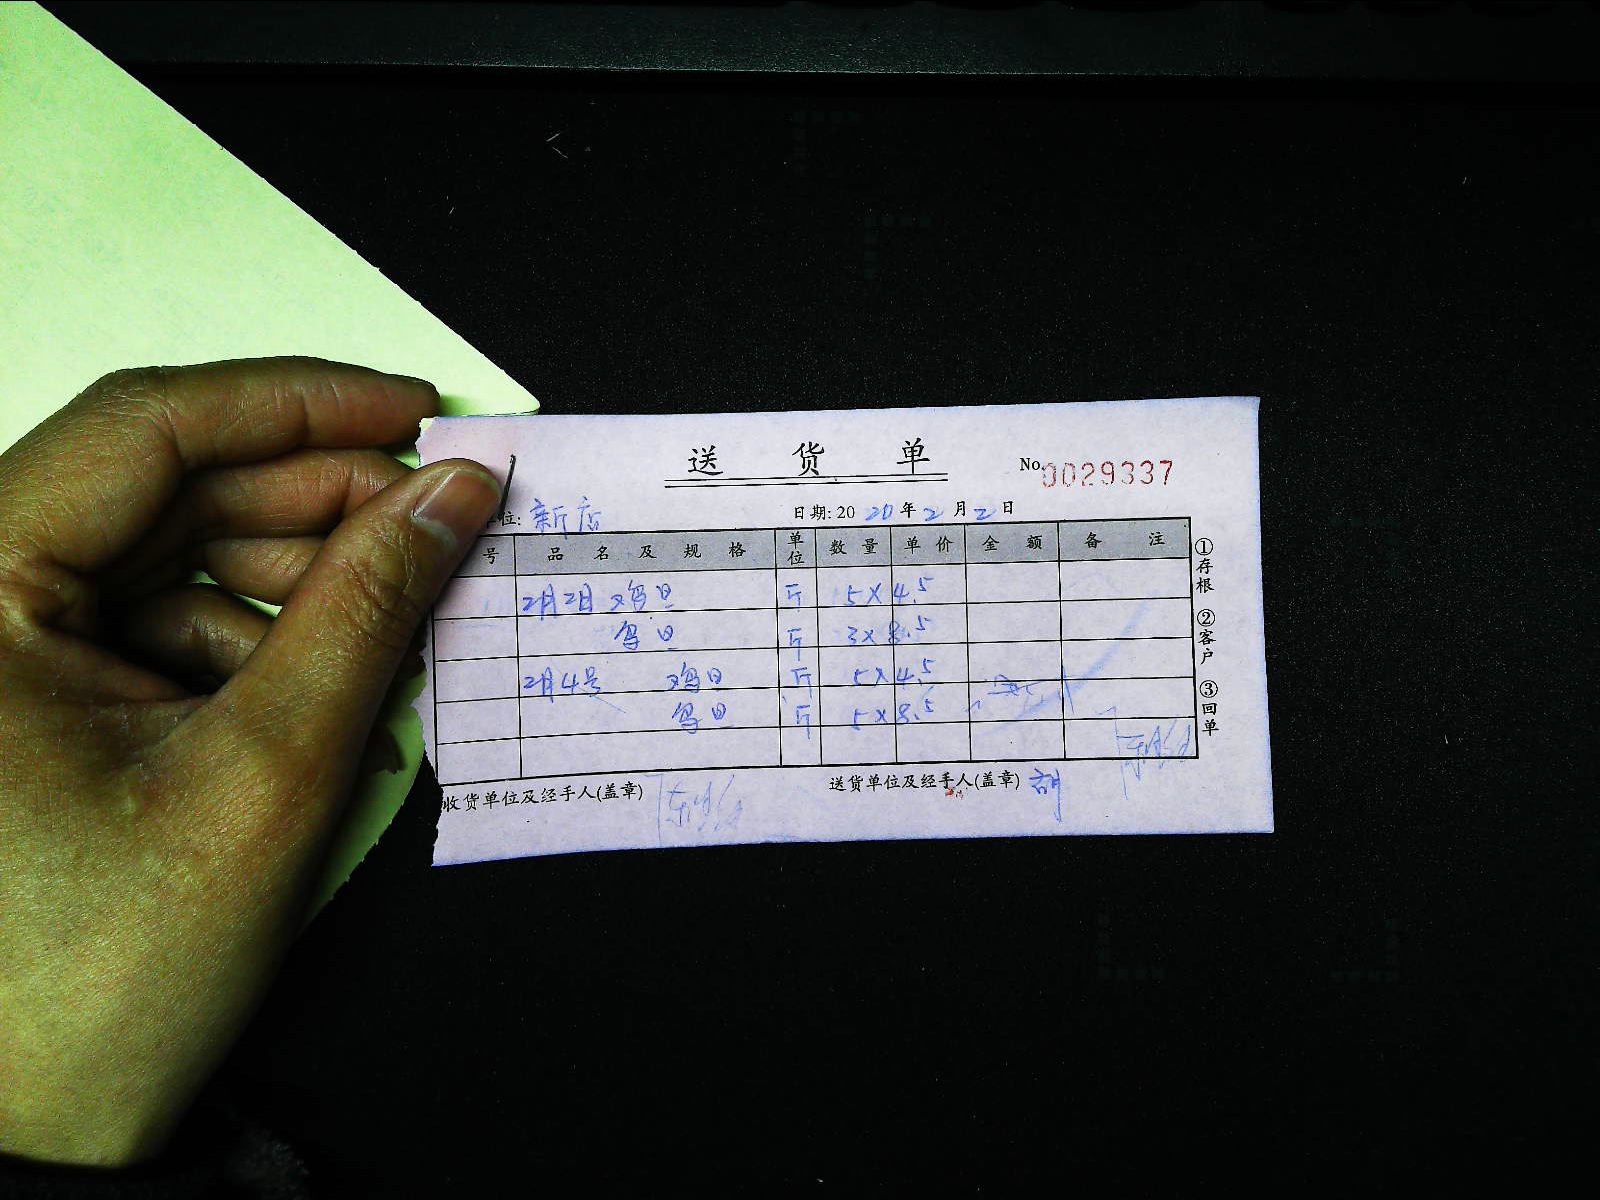 送 货 单
No. 0029337
位: 新店 日期: 2020年2月2日
号 品名及规格 单位 数量 单价 金额 备注
2月2日 鸡旦 斤 5×4.5
旦 斤 3×8.5
2月4号 鸡旦 斤 5×4.5
旦 斤 5×8.5
①存根 ②客户 ③回单
收货单位及经手人(盖章) 送货单位及经手人(盖章) 胡